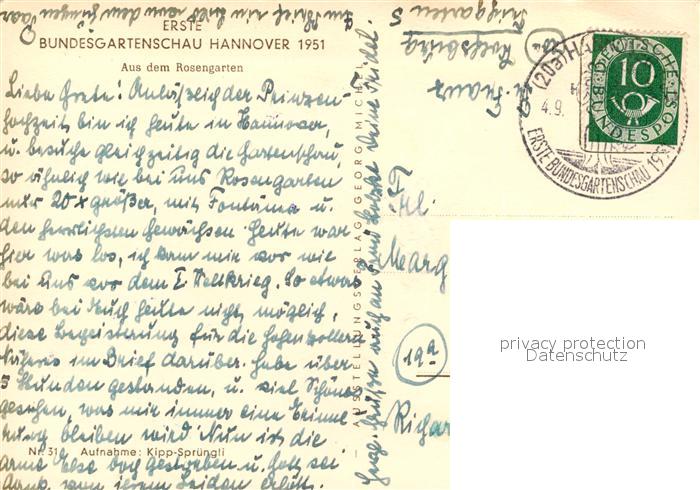 ERSTE
BUNDESGARTENSCHAU HANNOVER 1951
Aus dem Rosengarten
Liebe Grete! Anläßlich der Prinzen-
hochzeit bin ich heute in Hannover,
u. besuche gleichzeitig die Gartenschau,
so ähnlich wie bei uns Rosengarten
nur 20x größer, mit Fontäne u.
den herrlichsten Gewächsen. Heute war
hier was los, ich kam mir vor wie
bei uns vor dem I Weltkrieg. So etwas
wäre bei Euch heute nicht möglich,
diese Begeisterung für die Hohenzollern
Näheres im Brief darüber. Habe über
5 Stunden gestanden, u. viel Schönes
gesehen, was mir immer eine Erinne
rung bleiben wird. Nun ist die
arme Else doch gestorben u. Gott sei
dank von ihrem Leiden erlöst.
Nr. 31 Aufnahme: Kipp-Sprüngli
AUSSTELLUNGSVERLAG GEORG MICHEL
Frl.
Marg
19a
Richar
(20a) HA
4.9.
ERSTE BUNDESGARTENSCHAU 195
DEUTSCHE
BUNDESPOST
10
privacy protection
Datenschutz